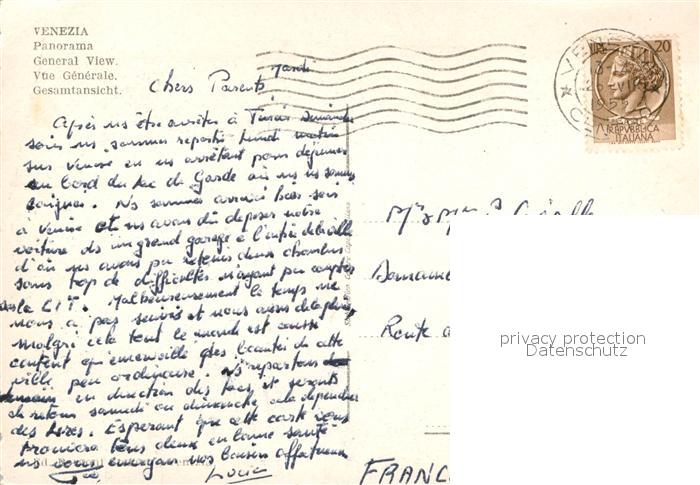 VENEZIA
Panorama
General View.
Vue Générale.
Gesamtansicht.
Mardi
Chers Parents
Après ns être arrêtés à Turin Dimanche
soir ns sommes repartis lundi matin
sur Venise en ns arrêtant pour déjeuner
au bord du lac de Garde où ns ns sommes
baignés. Ns sommes arrivés hier soir
à Venise et ns avons dû déposer notre
voiture ds un grand garage à l'entrée de la ville
d'où ns avons pu retenir deux chambres
sans trop de difficultés n'ayant pu compter
sur la CIT. Malheureusement le temps ne
nous a pas suivis et nous avons de la pluie,
malgré cela tout le monde est aussi
content qu'émerveillé des beautés de cette
ville peu ordinaire. Ns repartons
en direction des lacs, et serons
de retour samedi ou dimanche cela dépendra
des lires. Espérant que cette carte vous
trouvera tous deux en bonne santé
ns vous envoyons nos baisers affectueux
FRANC
Mr & Mme
Domaine
Route d
20
REPVBBLICA
ITALIANA
privacy protection
Datenschutz